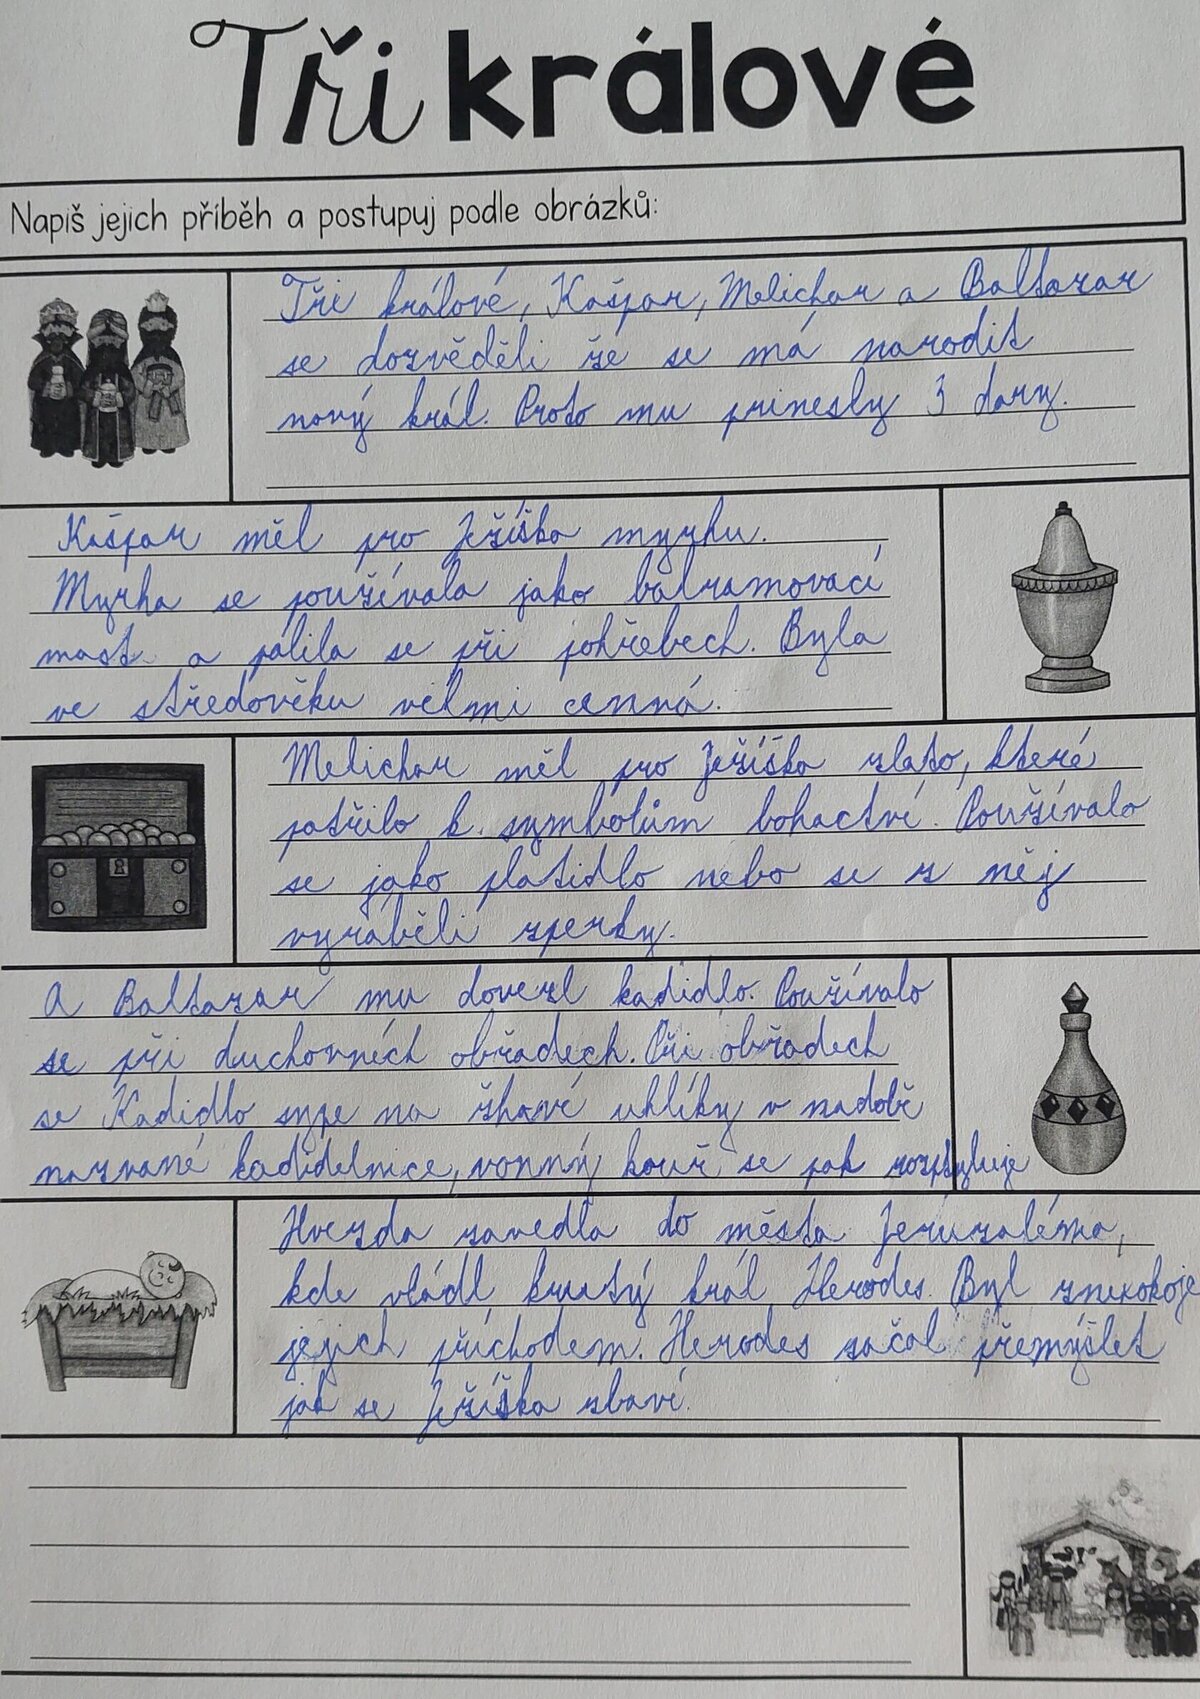 Tři králové
Napiš jejich příběh a postupuj podle obrázků:
Tři králové, Kašpar, Melichar a Baltazar
se dozvěděli že se má narodit
nový král. Proto mu prinesly 3 dary.
Kašpar měl pro Ježíška myrhu.
Myrha se používala jako balzamovací
mast a pálila se při pohřebech. Byla
ve středověku velmi cenná.
Melichar měl pro Ježíška zlato, které
patřilo k symbolům bohactví. Používalo
se jako platidlo nebo se z něj
vyráběli šperky.
A Baltazar mu dovezl kadidlo. Používalo
se při duchovních obřadech. Při obřadech
se Kadidlo sype na žhavé uhlíky v nadobě
nazvané kadidelnice, vonný kouř se pak rozptyluje
Hvezda zavedla do města Jeruzaléma,
kde vládl krutý král Herodes. Byl znekokoje
jejich příchodem. Herodes začal přemýšlet
jak se Ježíška zbaví.